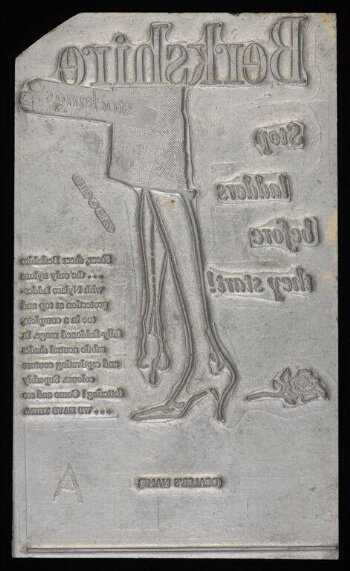 Berkshire
stockings
Stop
ladders
before
they start!
Sheer, sheer Berkshire
.... the only nylons
with Nylace ladder
protection at top and
toe in a complete,
fully-fashioned range. In
subtle neutral shades
and captivating couture
colours. Superbly
flattering! Come and see
.... WE HAVE THEM
(DEALER'S NAME)
A